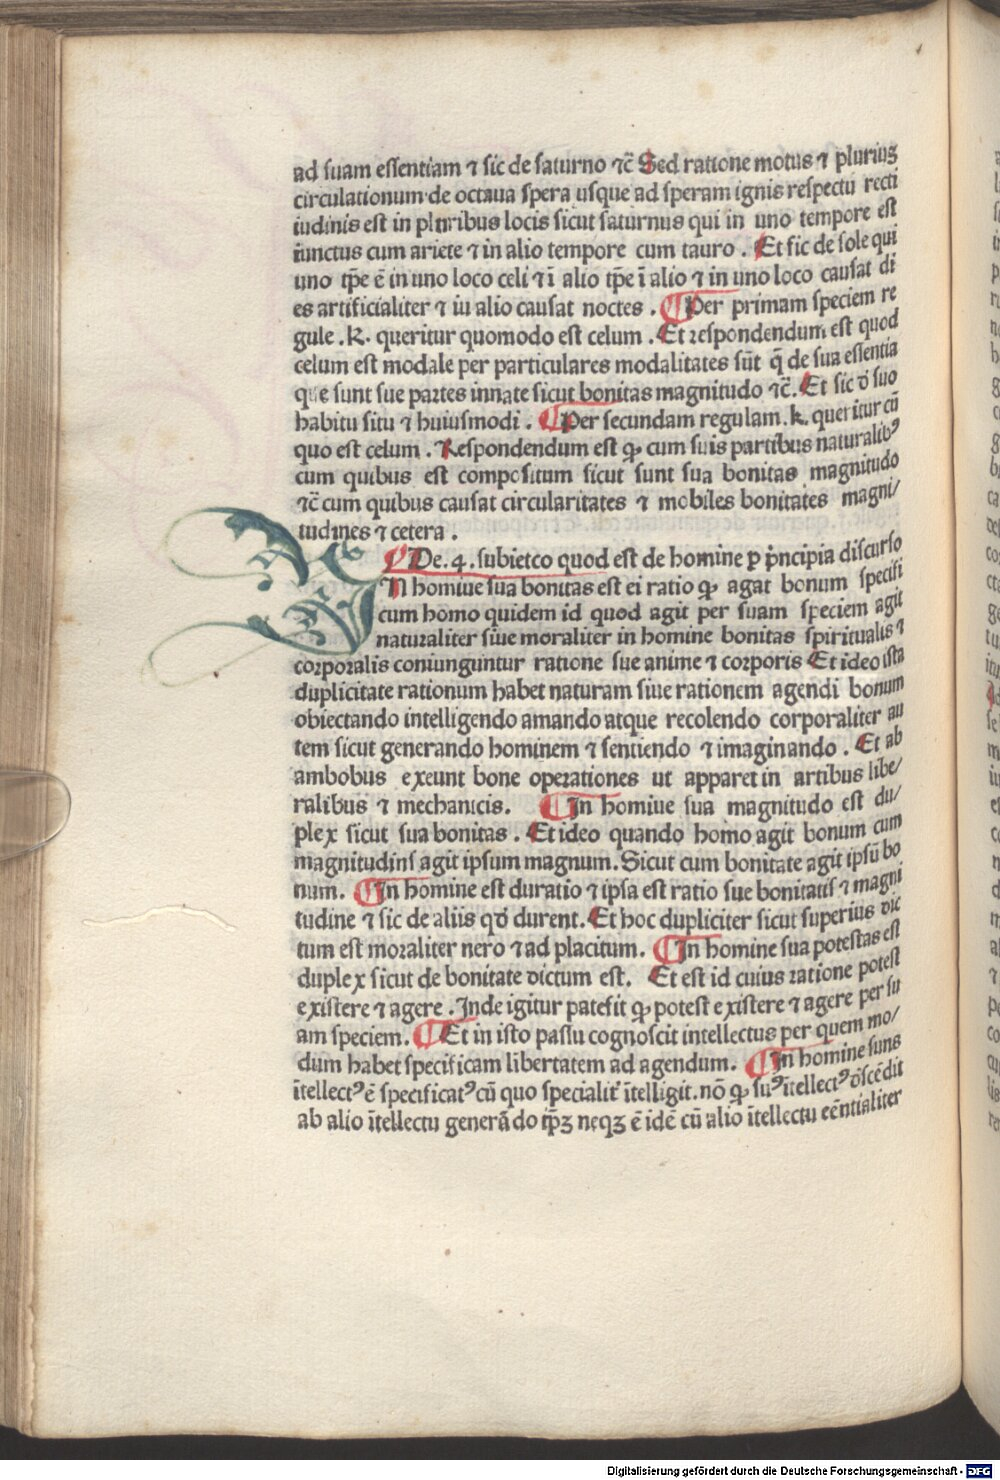 ad suam essentiam ⁊ sic de saturno ⁊c̄ Sed ratione motus ⁊ plurius
circulationum de octaua spera usque ad speram ignis respectu recti
tudinis est in pluribus locis sicut saturnus qui in uno tempore est
iunctus cum ariete ⁊ in alio tempore cum tauro . Et sic de sole qui
uno tp̄e ē in uno loco celi ⁊ ī alio tp̄e ī alio ⁊ in uno loco causat di
es artificialiter ⁊ iu alio causat noctes . ¶ Per primam speciem re
gule .k. queritur quomodo est celum . Et respondendum est quod
celum est modale per particulares modalitates sūt q̄ de sua essentia
que sunt sue partes innate sicut bonitas magnitudo ⁊c̄. Et sic ō suo
habitu situ ⁊ huiusmodi . ¶ Per secundam regulam .k. queritur cū
quo est celum . Respondendum est ꝙ cum suis partibus naturalibꝰ
cum quibus est compositum sicut sunt sua bonitas magnitudo
⁊c̄ cum quibus causat circularitates ⁊ mobiles bonitates magni/
tudines ⁊ cetera .
¶ De .4. subietco quod est de homine p pͥncipia discurso
In homiue sua bonitas est ei ratio ꝙ agat bonum specifi
cum homo quidem id quod agit per suam speciem agit
naturaliter siue moraliter in homine bonitas spiritualis ⁊
corporalis coniunguntur ratione sue anime ⁊ corporis Et ideo ista
duplicitate rationum habet naturam siue rationem agendi bonum
obiectando intelligendo amando atque recolendo corporaliter au
tem sicut generando hominem ⁊ sentiendo ⁊ imaginando . Et ab
ambobus exeunt bone operationes ut apparet in artibus libe/
ralibus ⁊ mechanicis. ¶ In homiue sua magnitudo est du/
plex sicut sua bonitas . Et ideo quando homo agit bonum cum
magnitudins agit ipsum magnum. Sicut cum bonitate agit ipsū bo
num. ¶ In homine est duratio ⁊ ipsa est ratio sue bonitatis ⁊ magni
tudine ⁊ sic de aliis qd̄ durent. Et hoc dupliciter sicut superius dic
tum est moraliter nero ⁊ ad placitum. ¶ In homine sua potestas est
duplex sicut de bonitate dictum est. Et est id cuius ratione potest
existere ⁊ agere . Inde igitur patefit ꝙ potest existere ⁊ agere per su
am speciem. ¶ Et in isto passu cognoscit intellectus per quem mo/
dum habet specificam libertatem ad agendum. ¶ In homine suus
ītellectꝰ ē specificatꝰ cū quo specialit͛ ītelligit. nō ꝙ suꝰ ītellectꝰ d̄scēdit
ab alio ītellectu generādo tp̄ꝫ neqꝫ ē idē cū alio ītellectu eēntialiter
Digitalisierung gefördert durch die Deutsche Forschungsgemeinschaft - DFG